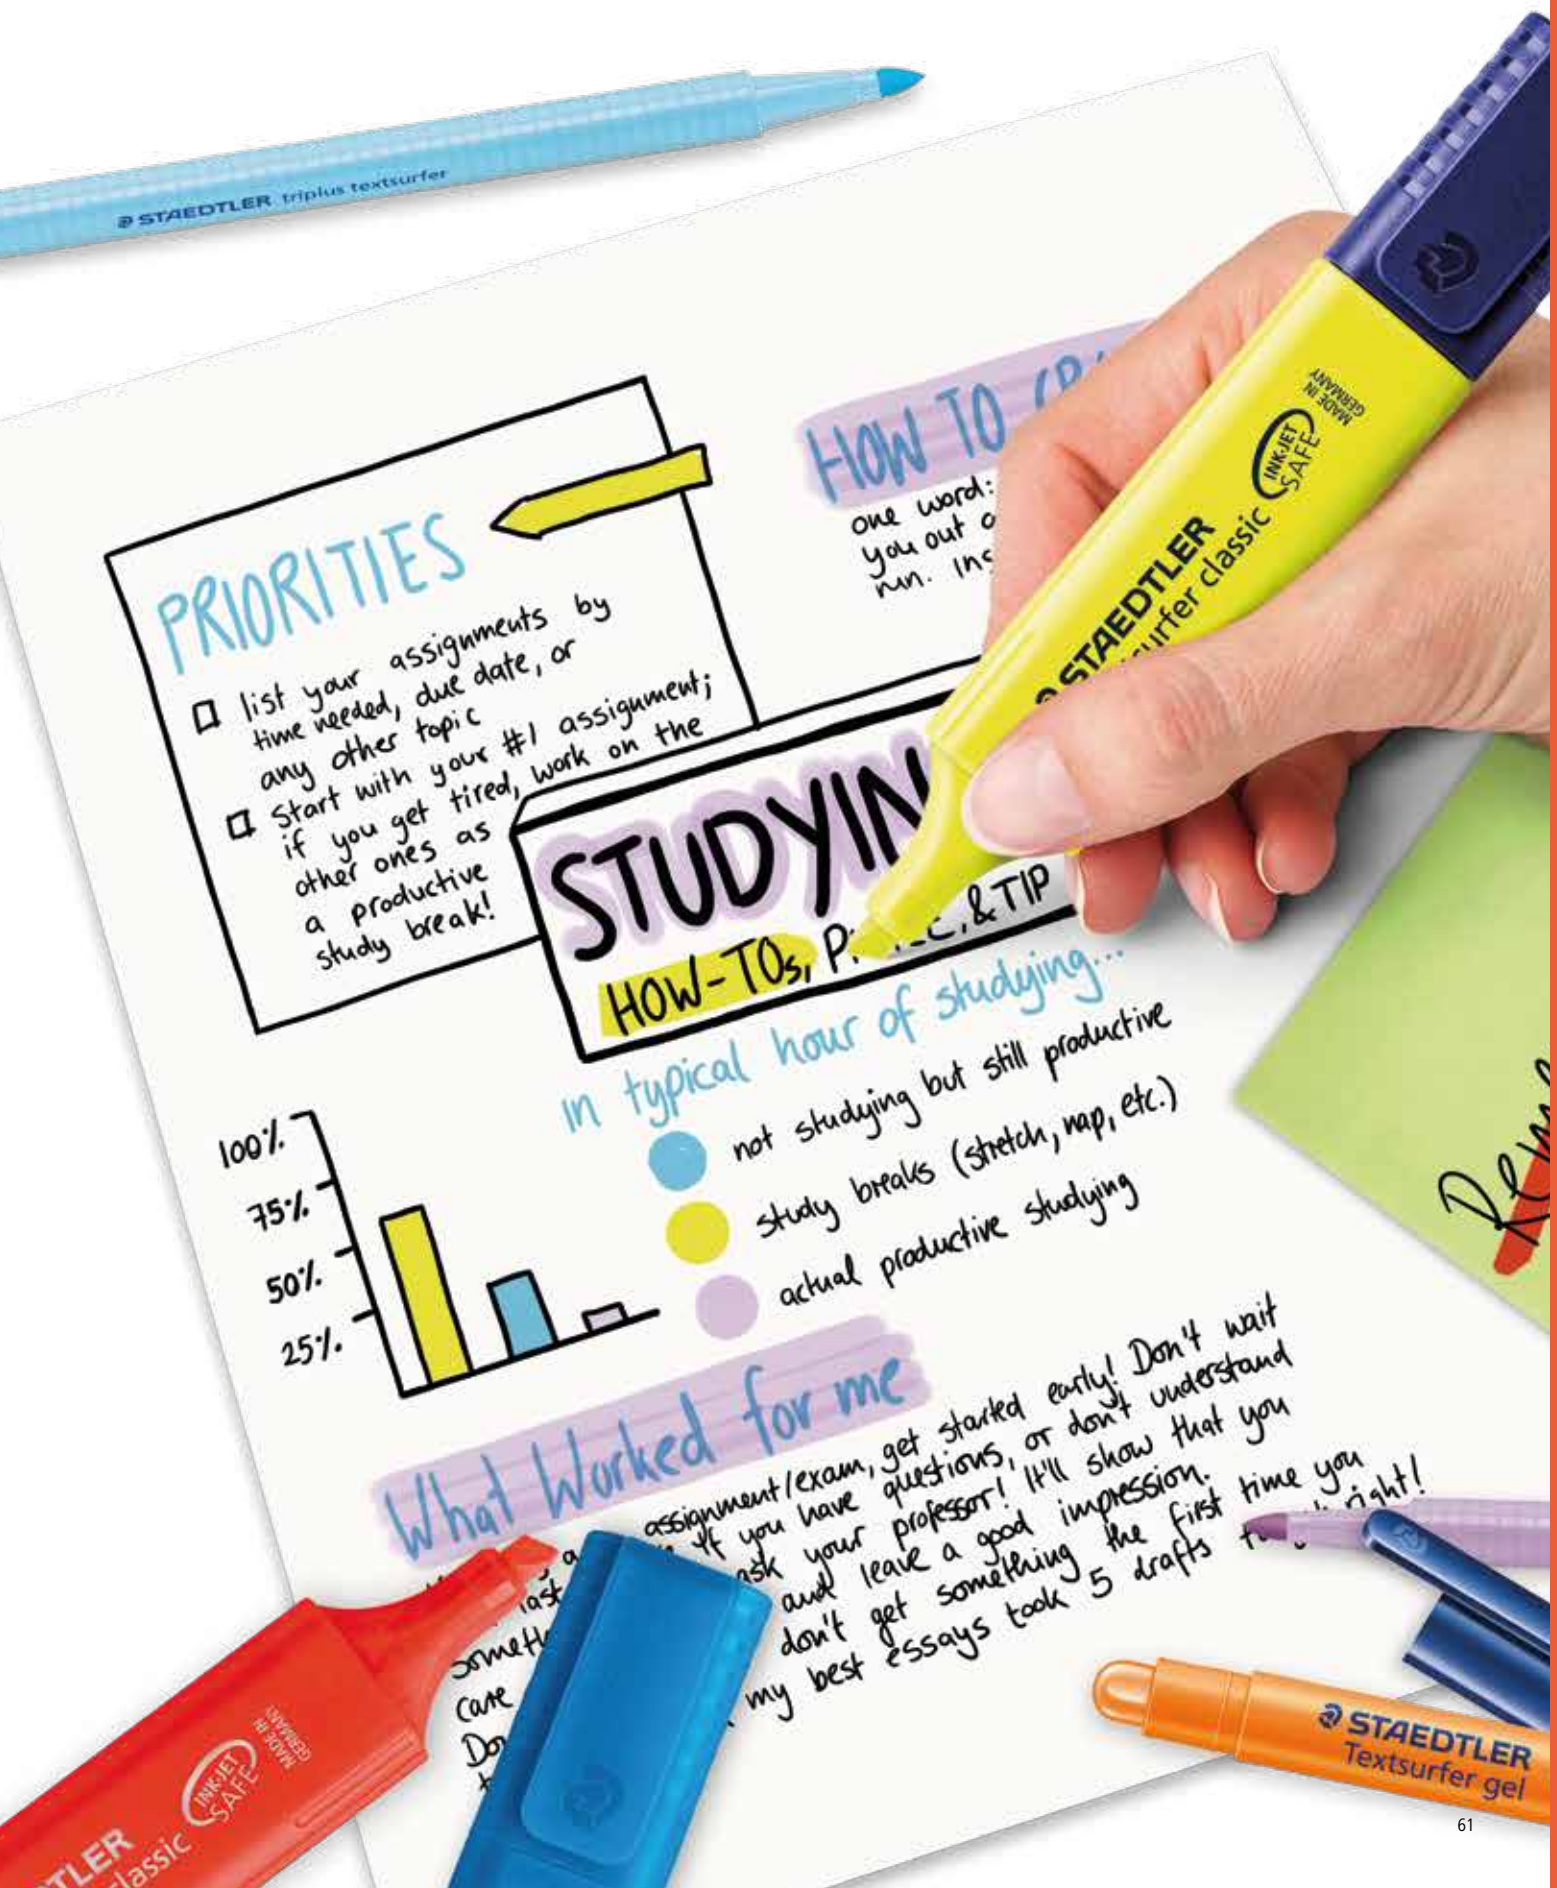 STAEDTLER triplus textsurfer
HOW TO
one word:
you out
run.
MADE IN
GERMANY
INKJET
SAFE
STAEDTLER
classic
PRIORITIES
list your assignments by
time needed, due date, or
any other topic
Start with your #1 assignment;
if you get tired, work on the
other ones as
a productive
study break!
STUDYIN
HOW-TOs, & TIP
in typical hour of studying...
not studying but still productive
study breaks (stretch, nap, etc.)
actual productive studying
100%
75%
50%
25%
What Worked for me
assignment/exam, get started early! Don't wait
last If you have questions, or don't understand
ask your professor! It'll show that you
care and leave a good impression.
don't get something the first time you
my best essays took 5 drafts right!
MADE IN
GERMANY
INKJET
SAFE
STAEDTLER
Textsurfer gel
61